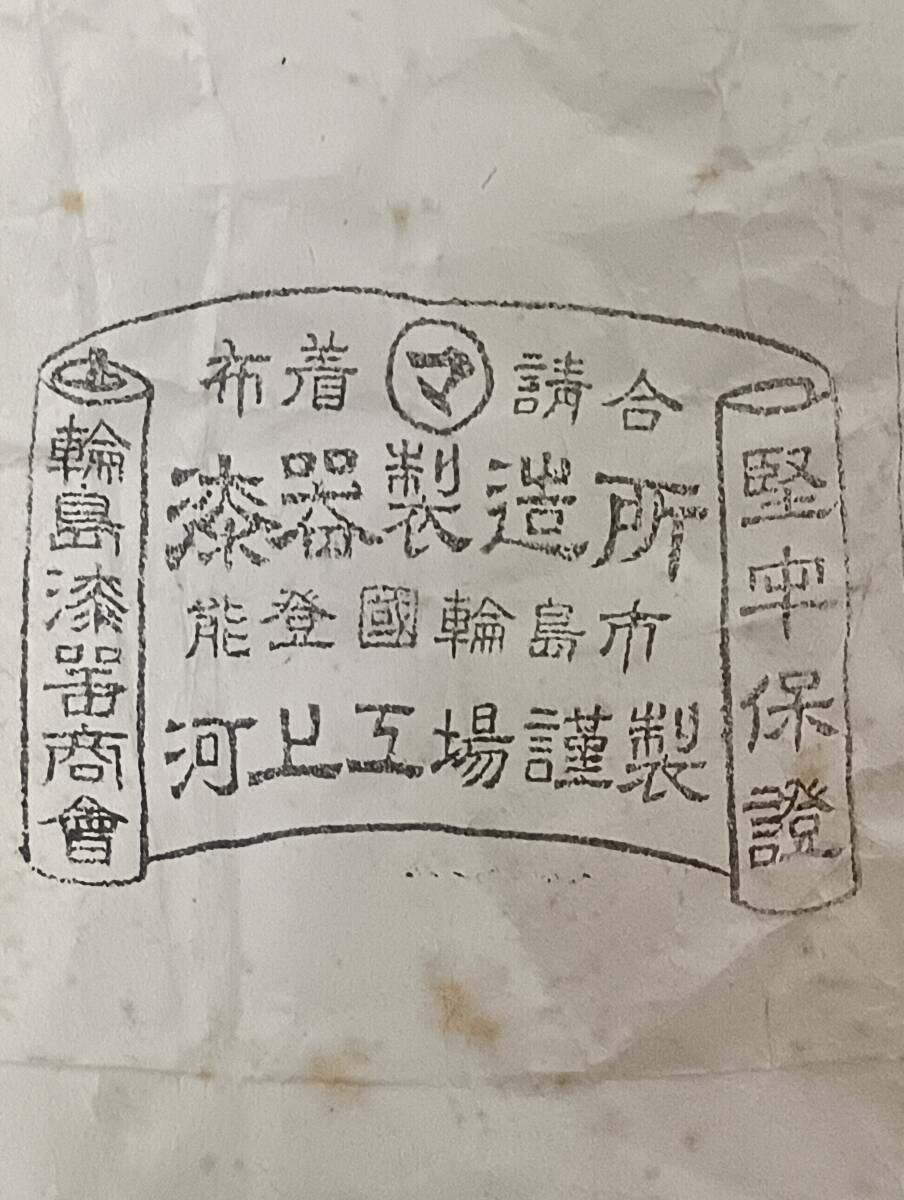 堅牢保證
布着 マ 請合
漆器製造所
能登國輪島市
河上工場謹製
輪島漆器商會